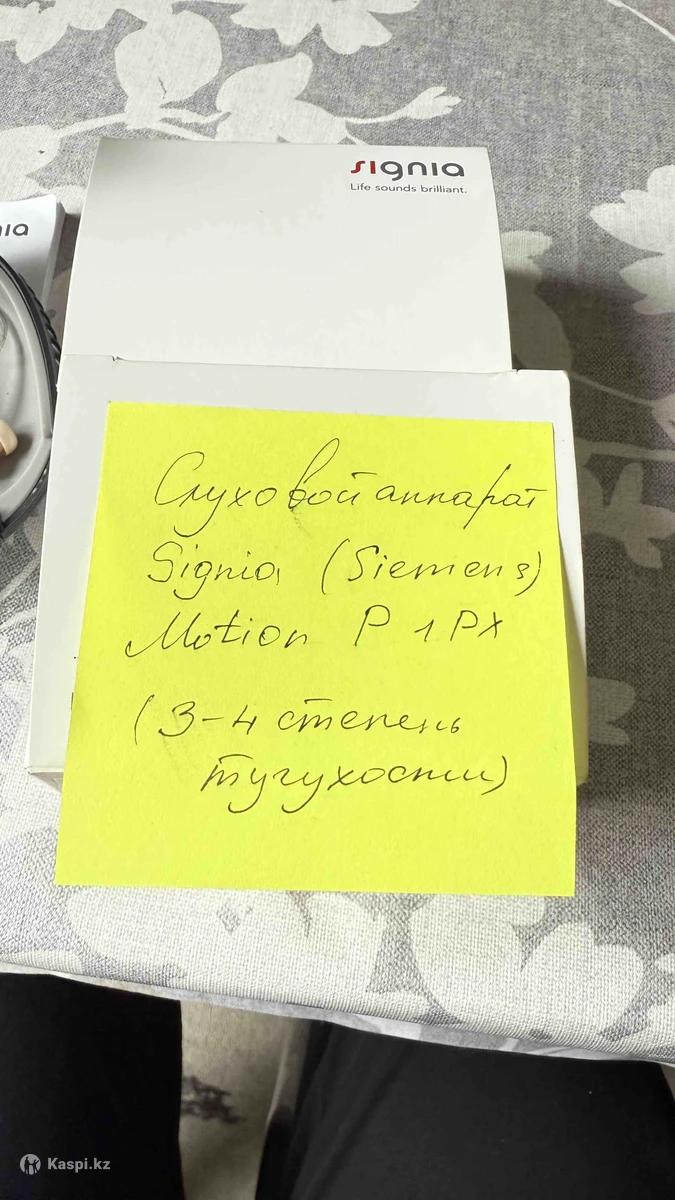 signia
Life sounds brilliant.
nia
Слуховой аппарат
Signia (Siemens)
Motion P 1 PX
(3-4 степень
тугухости)
Kaspi.kz